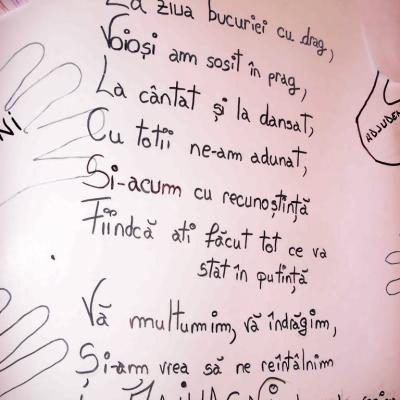 La ziua bucuriei cu drag,
Voioși am sosit în prag,
La cântat și la dansat,
Cu totii ne-am adunat,
Și-acum cu recunoștință
Fiindcă ati făcut tot ce va
stat în putință
Vă multumim, vă îndrăgim,
Și-am vrea să ne reîntâlnim